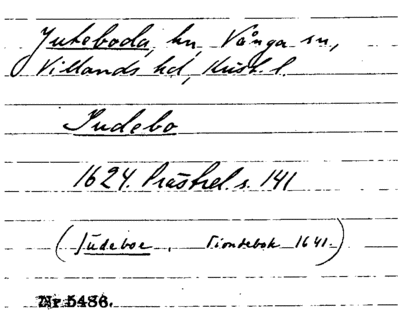 Juteboda, hn, Vånga sn,
Villands hd, Krist. l.
Judebo
1624. Prästrel. s. 141
(Judeboe, Tiondebok 1641.)
Nr 5486.